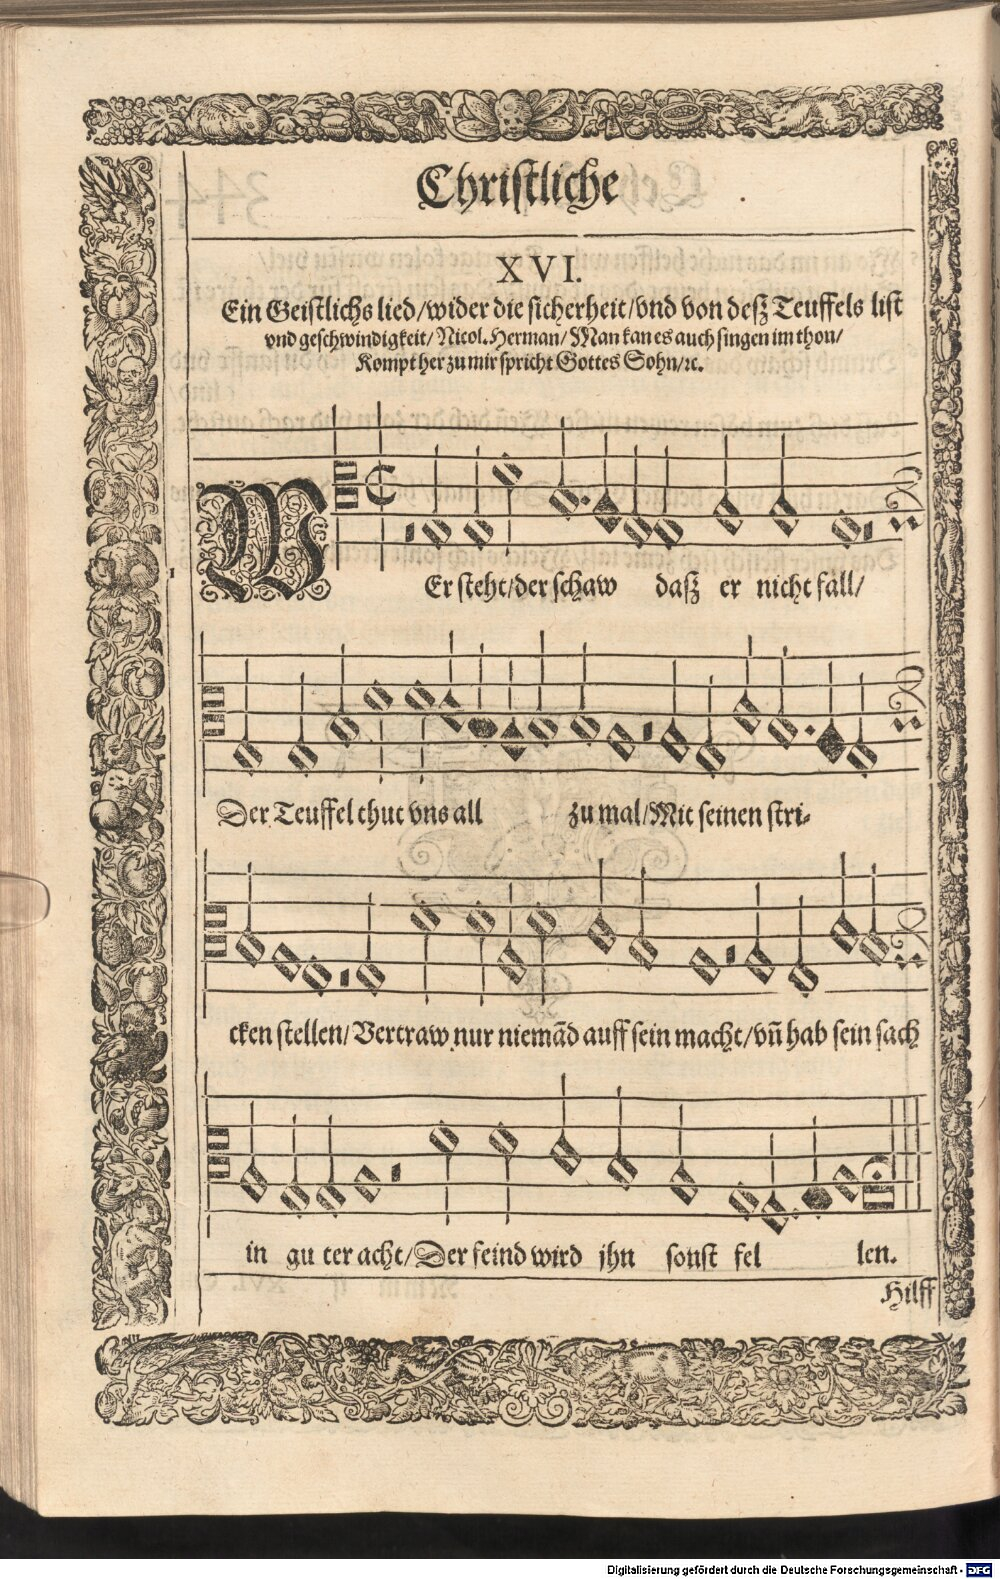 Christliche
XVI.
Ein Geistlichs lied/wider die sicherheit/vnd von desz Teuffels list
vnd geschwindigkeit/Nicol. Herman/Man kan es auch singen im thon/
Kompt her zu mir spricht Gottes Sohn/ꝛc.
WEr steht/der schaw dasz er nicht fall/
Der Teuffel thut vns all zu mal/Mit seinen stri-
cken stellen/Vertraw nur niemād auff sein macht/vn̄ hab sein sach
in gu ter acht/Der feind wird jhn sonst fel len.
Hilff
Digitalisierung gefördert durch die Deutsche Forschungsgemeinschaft - DFG